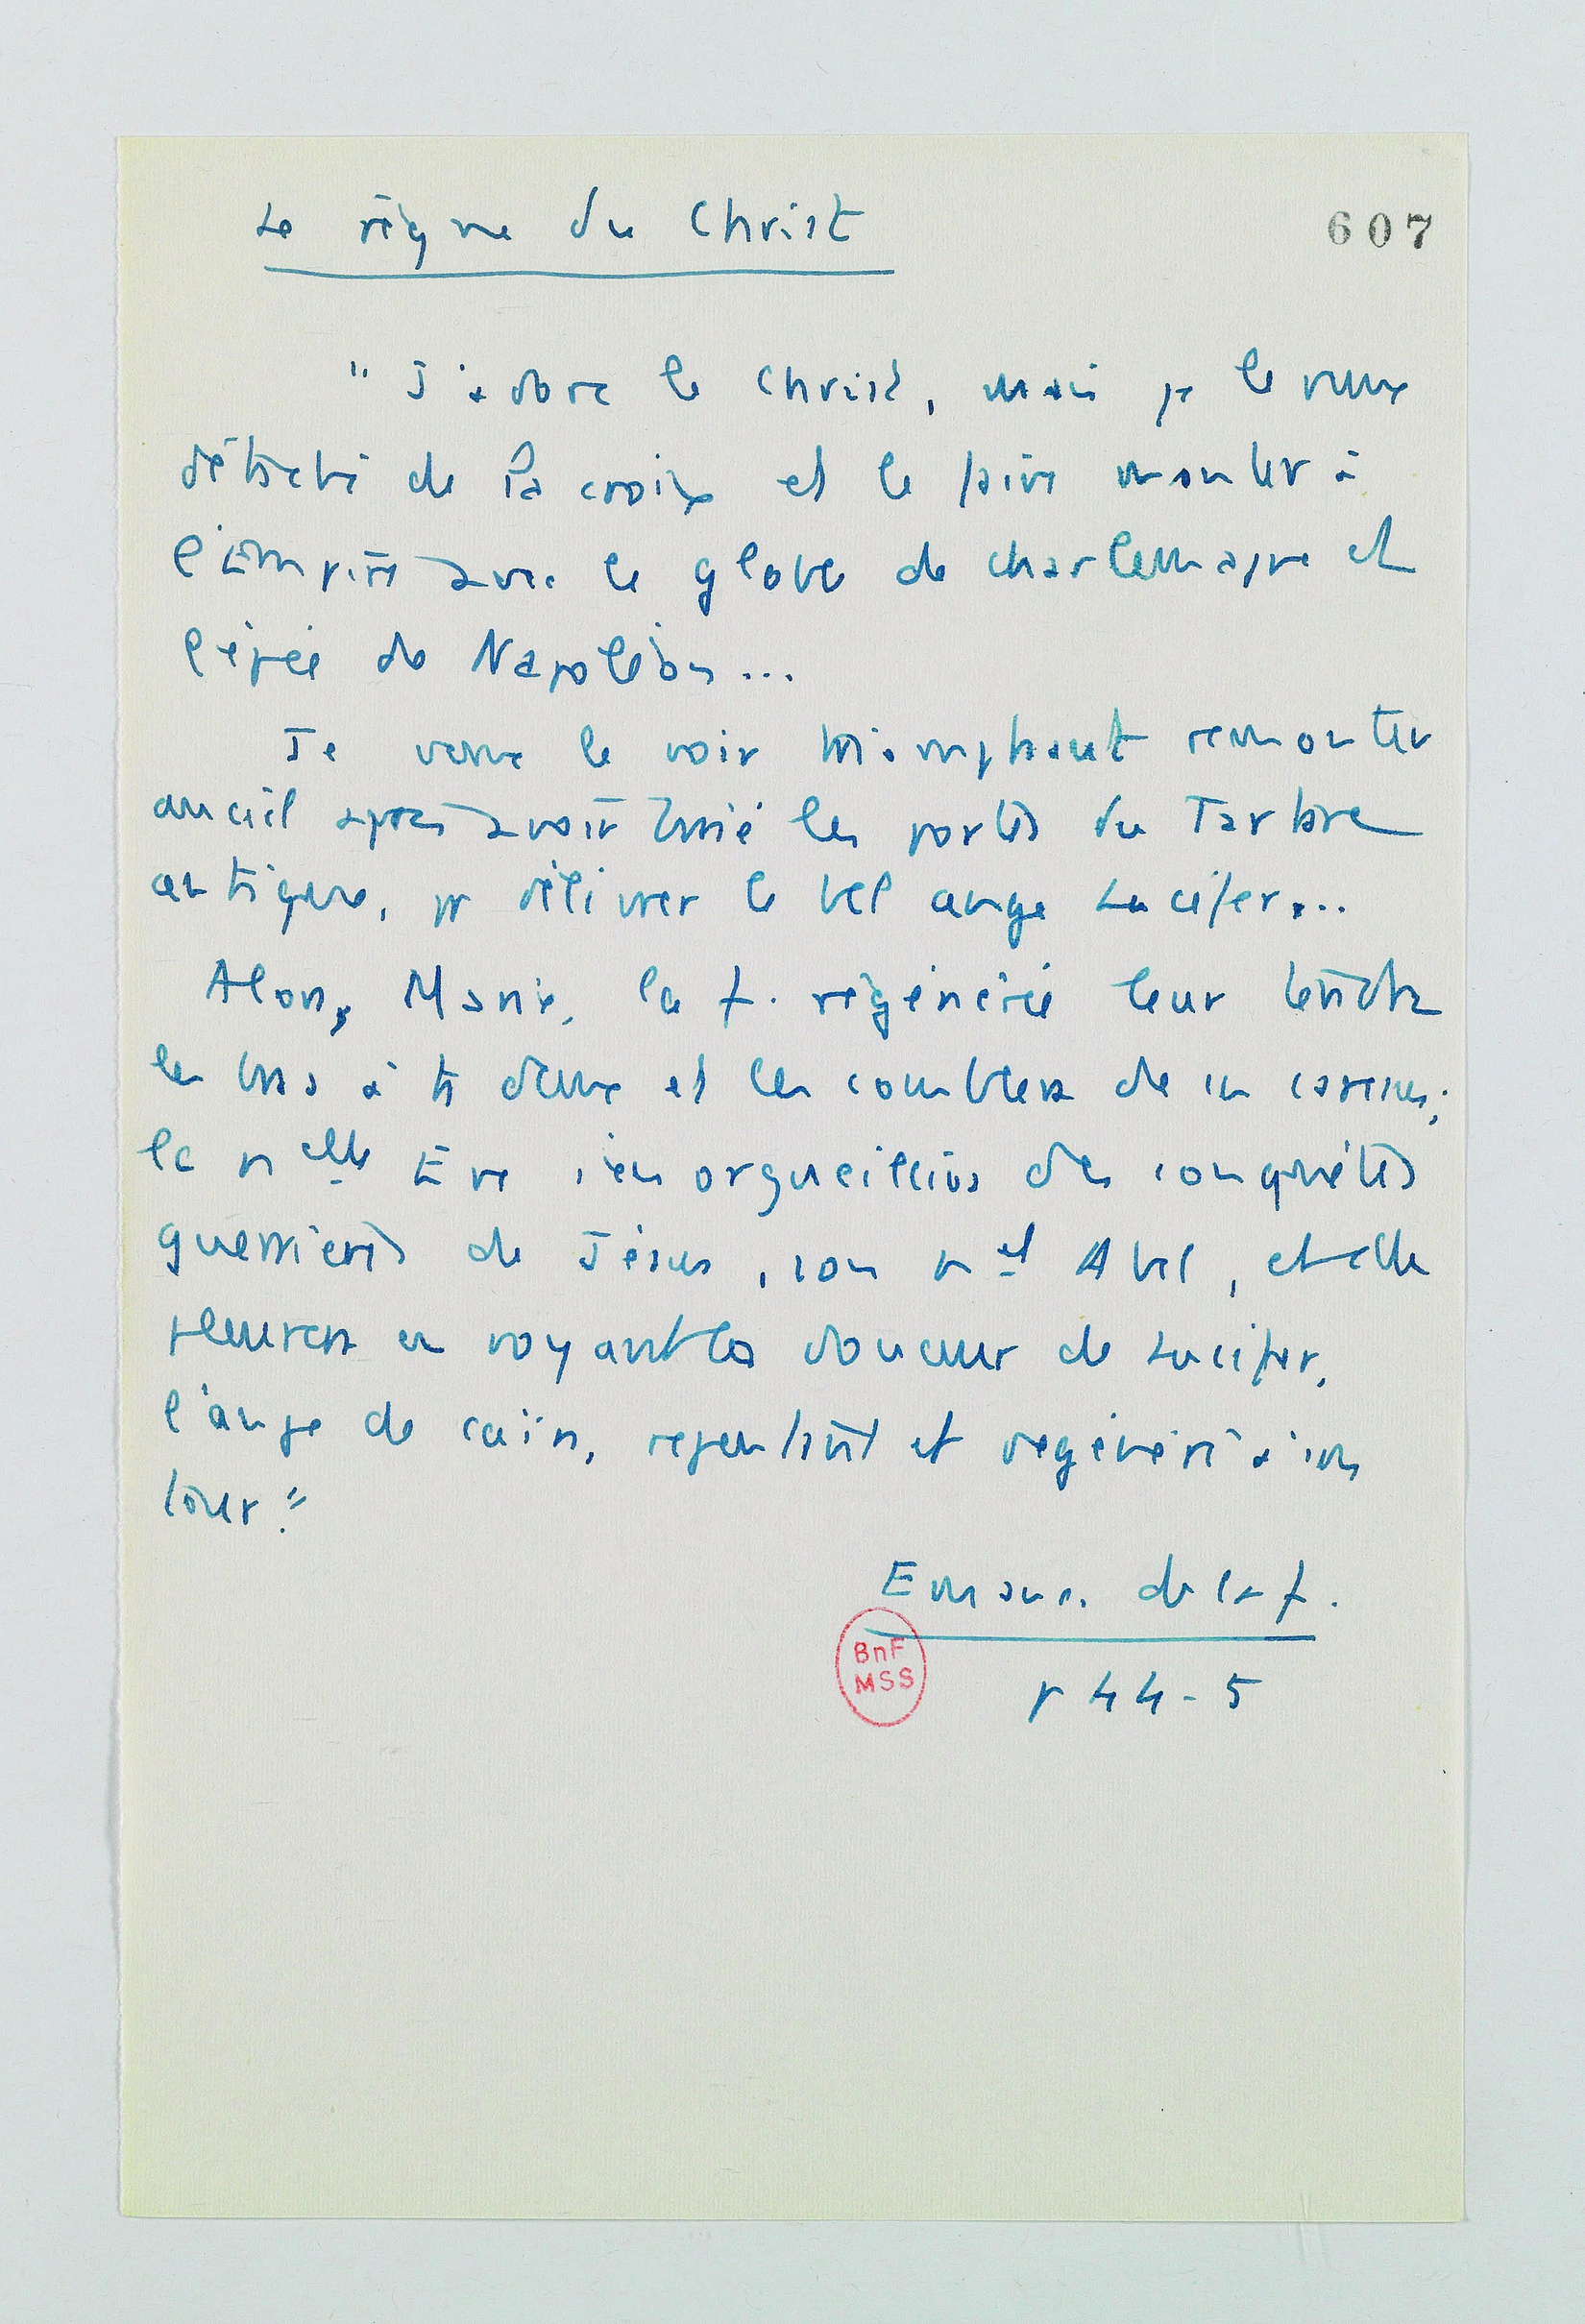 Le règne du Christ
607
" J'adore le Christ, mais je le veux
détaché de la croix et le faire monter à
l'Empire avec le globe de Charlemagne et
l'épée de Napoléon...
Je veux le voir triomphant remonter
au ciel après avoir brisé les portes du Tartare
antique, pr délivrer le bel ange Lucifer...
Alors, Marie, la f. régénérée leur tendra
les bras à ts deux et les comblera de ses caresses;
la nelle Eve s'enorgueillira des conquêtes
guerrières de Jésus, son nel Abel, et elle
pleurera en voyant la douceur de Lucifer,
l'ange de Caïn, repentant et régénéré à son
tour."
Eman. de la f.
p 44-5
BnF
MSS